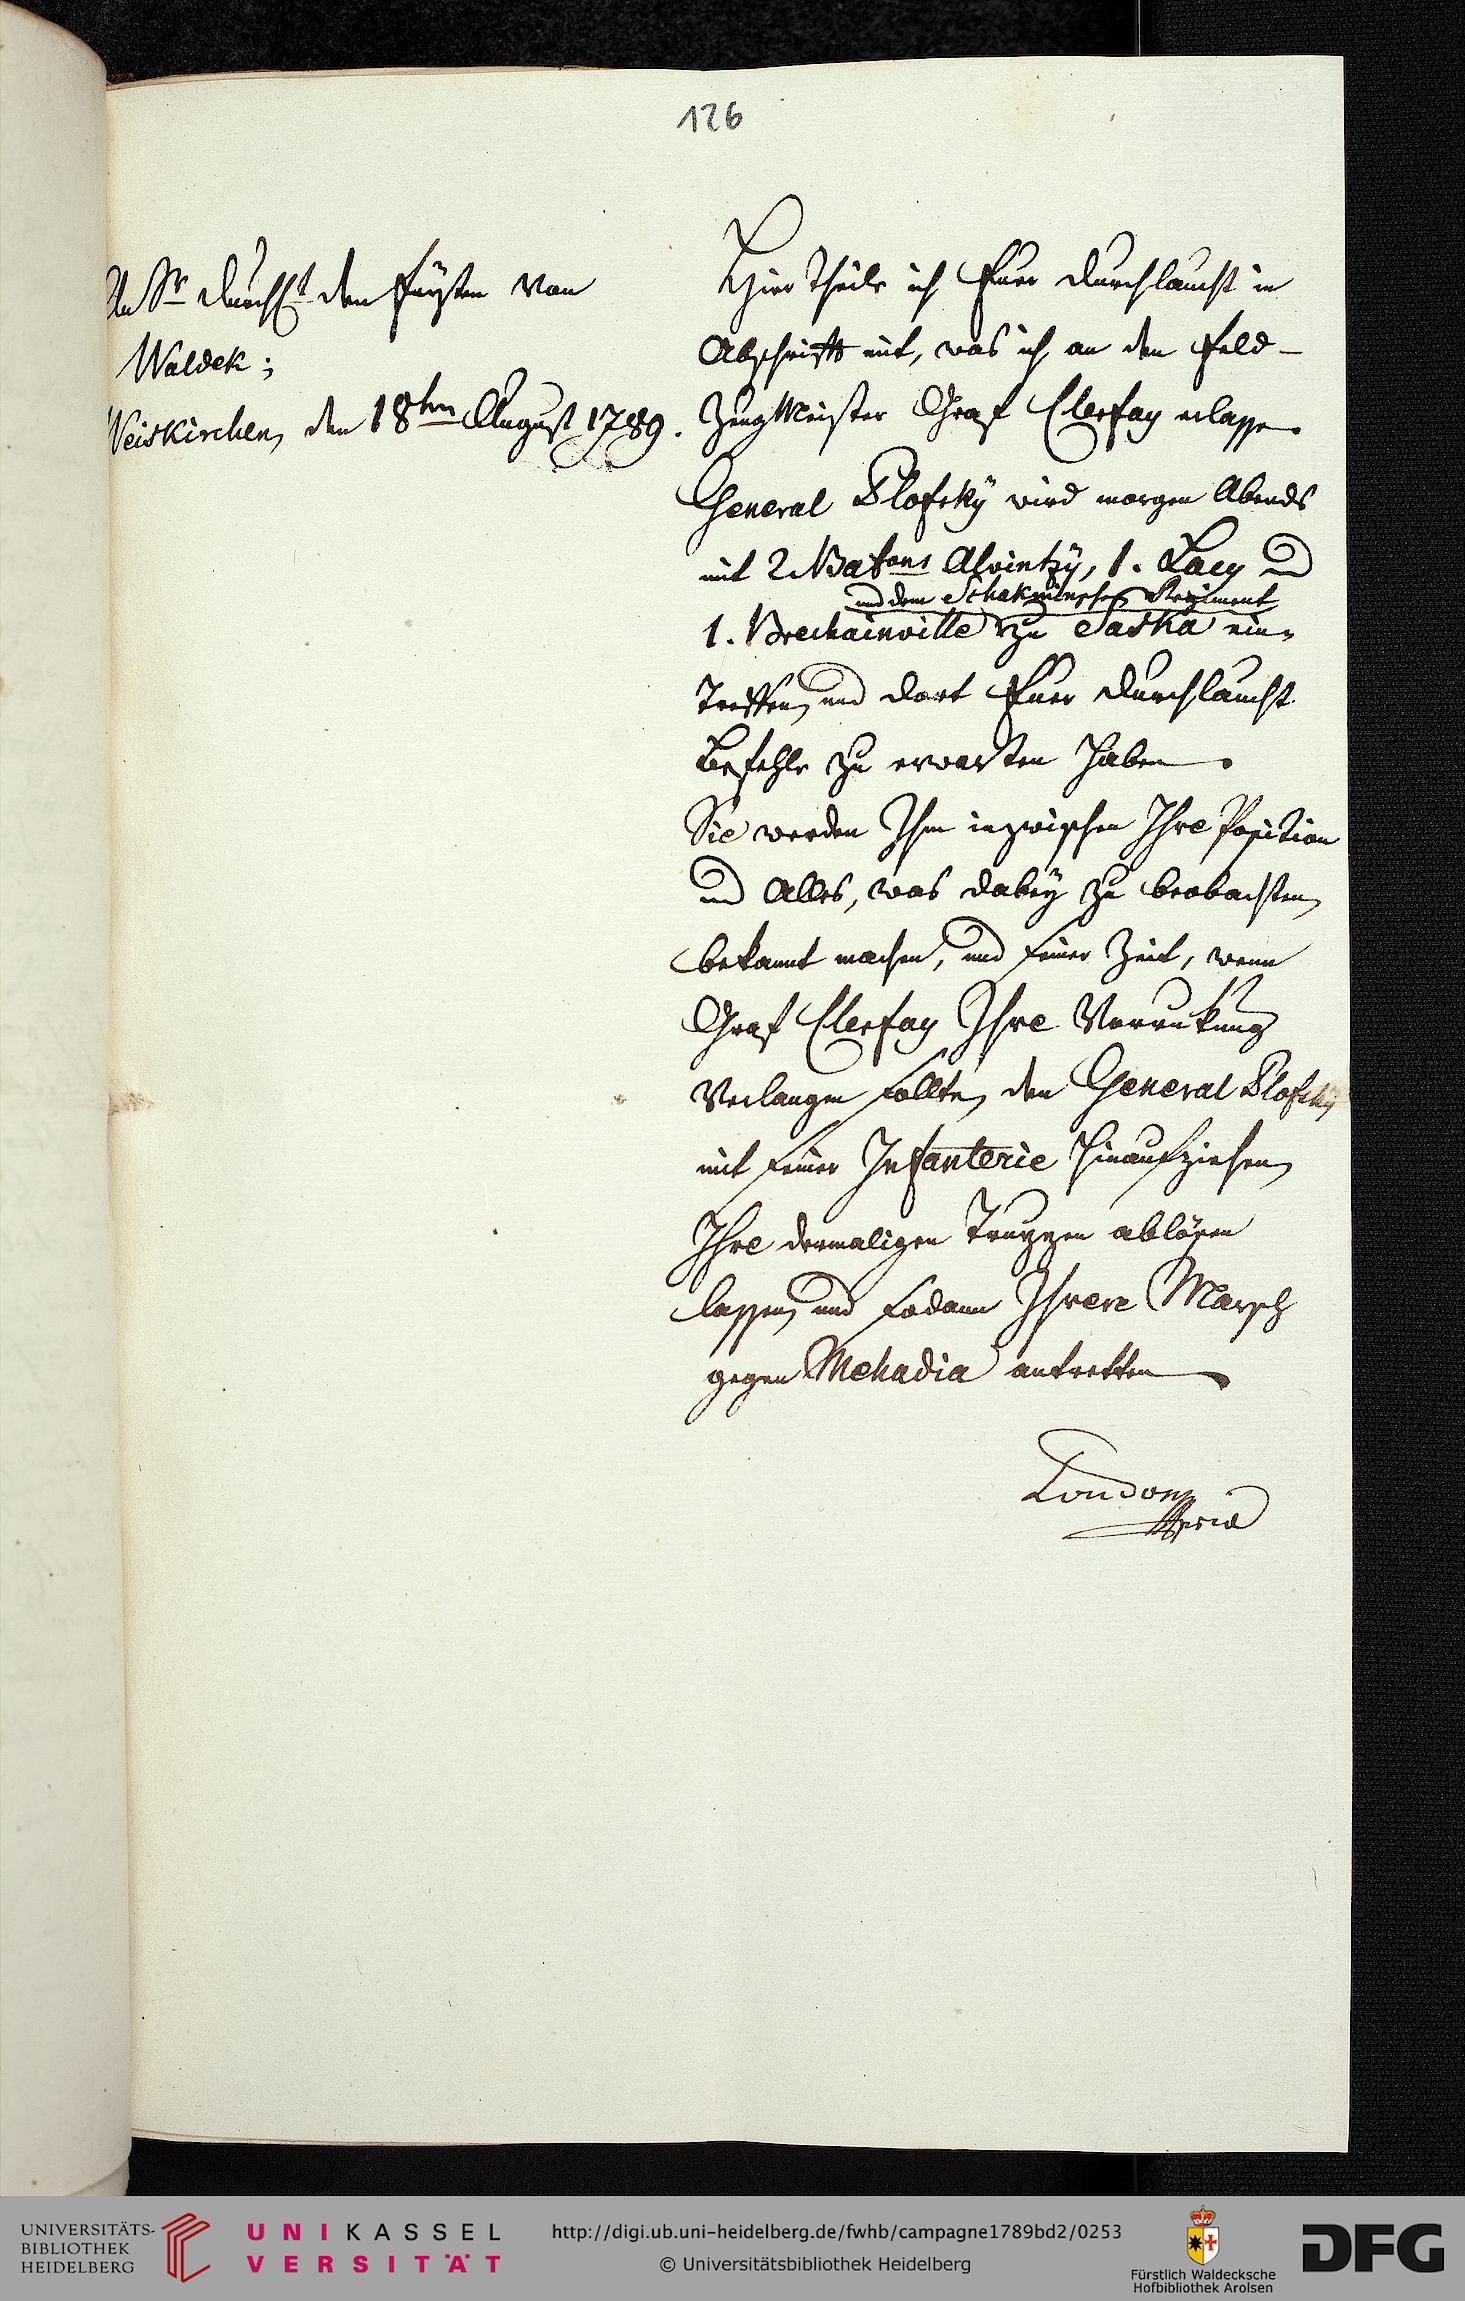 126
An Sr Durchlt den Fürsten von
Waldek;
Weiskirchen, den 18ten August 1789.
Hier theile ich Euer Durchlaucht in
Abschrift mit, was ich an den Feld-
zeugMeister Graf Clerfay erlasse.
General Blofsky wird morgen Abends
mit 2 Batons Alvintzy, 1. Lacy und
und dem Schakminschen Regiment
1. Brechainville zu Saska ein-
treffen, und dort Euer Durchlaucht
Befehle zu erwarten haben.
Sie werden Ihm inzwischen Ihre Position
und Alles, was dabey zu beobachten,
bekannt machen, und seiner Zeit, wenn
Graf Clerfay Ihre Vorrukung
verlangen sollte, den General Blofsky
mit seiner Infanterie hinaufziehen,
Ihre dermaligen Truppen ablösen
lassen, und sodann Ihren Marsch
gegen Mehadia antretten.
Loudon
UNIVERSITÄTS-
BIBLIOTHEK
HEIDELBERG
UNIKASSEL
VERSITÄT
http://digi.ub.uni-heidelberg.de/fwhb/campagne1789bd2/0253
© Universitätsbibliothek Heidelberg
Fürstlich Waldecksche
Hofbibliothek Arolsen
DFG